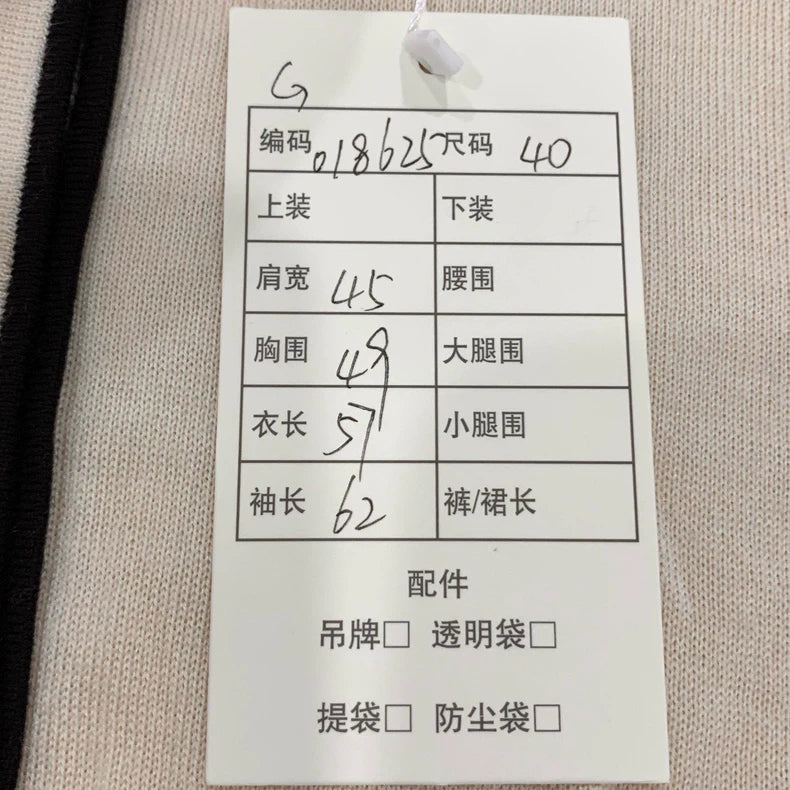 G
编码 018625 尺码 40
上装 下装
肩宽 45 腰围
胸围 49 大腿围
衣长 57 小腿围
袖长 62 裤/裙长
配件
吊牌□ 透明袋□
提袋□ 防尘袋□